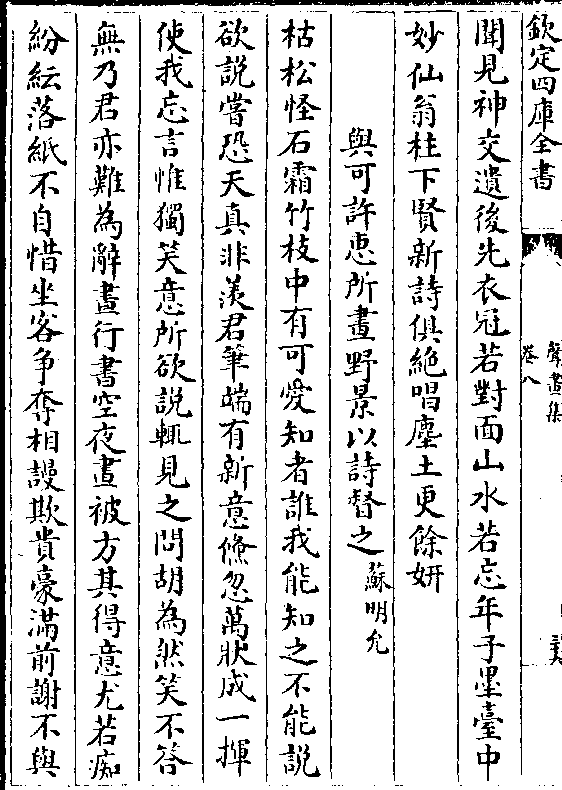 欽定四庫全書
聲畫集
卷八
聞見神交遺後先衣冠若對面山水若忘年子墨臺中
妙仙翁柱下賢新詩俱絶唱塵土更餘妍
與可許惠所畫野景以詩督之 蘇明允
枯松怪石霜竹枝中有可愛知者誰我能知之不能説
欲説嘗恐天真非羨君筆端有新意倐忽萬狀成一揮
使我忘言惟獨笑意所欲説輒見之問胡為然笑不答
無乃君亦難為辭晝行書空夜畫被方其得意尤若痴
紛紜落紙不自惜坐客争奪相謾欺貴豪滿前謝不與